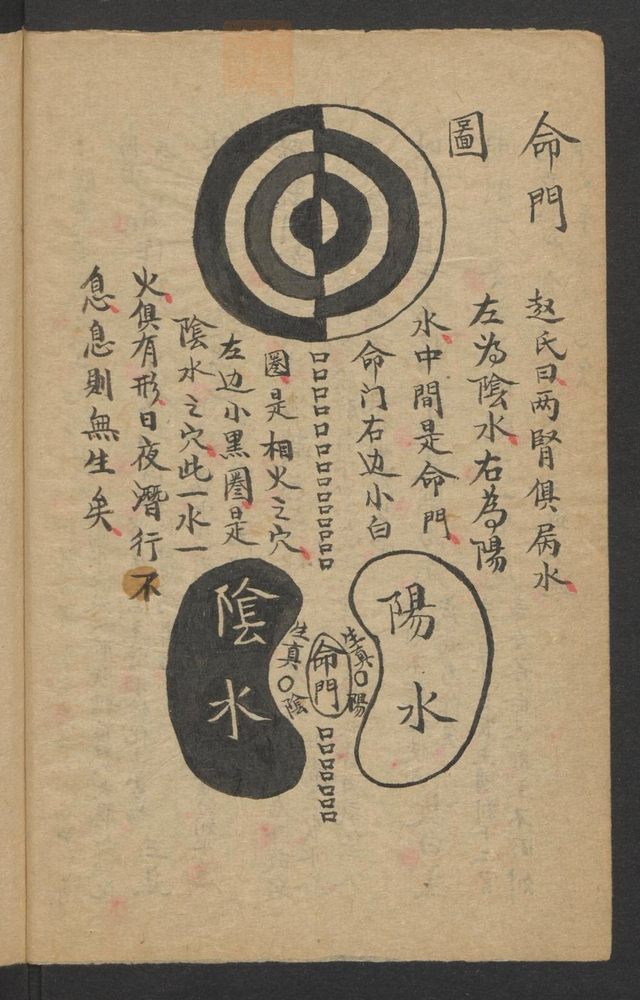 命門
圖
赵氏曰两腎俱属水
左为陰水右為陽
水中間是命門
命门右边小白
圈是相火之穴
左边小黑圈是
陰水之穴此一水一
火俱有形日夜潛行不
息息則無生矣
陽水
生真陽
命門
生真陰
陰水